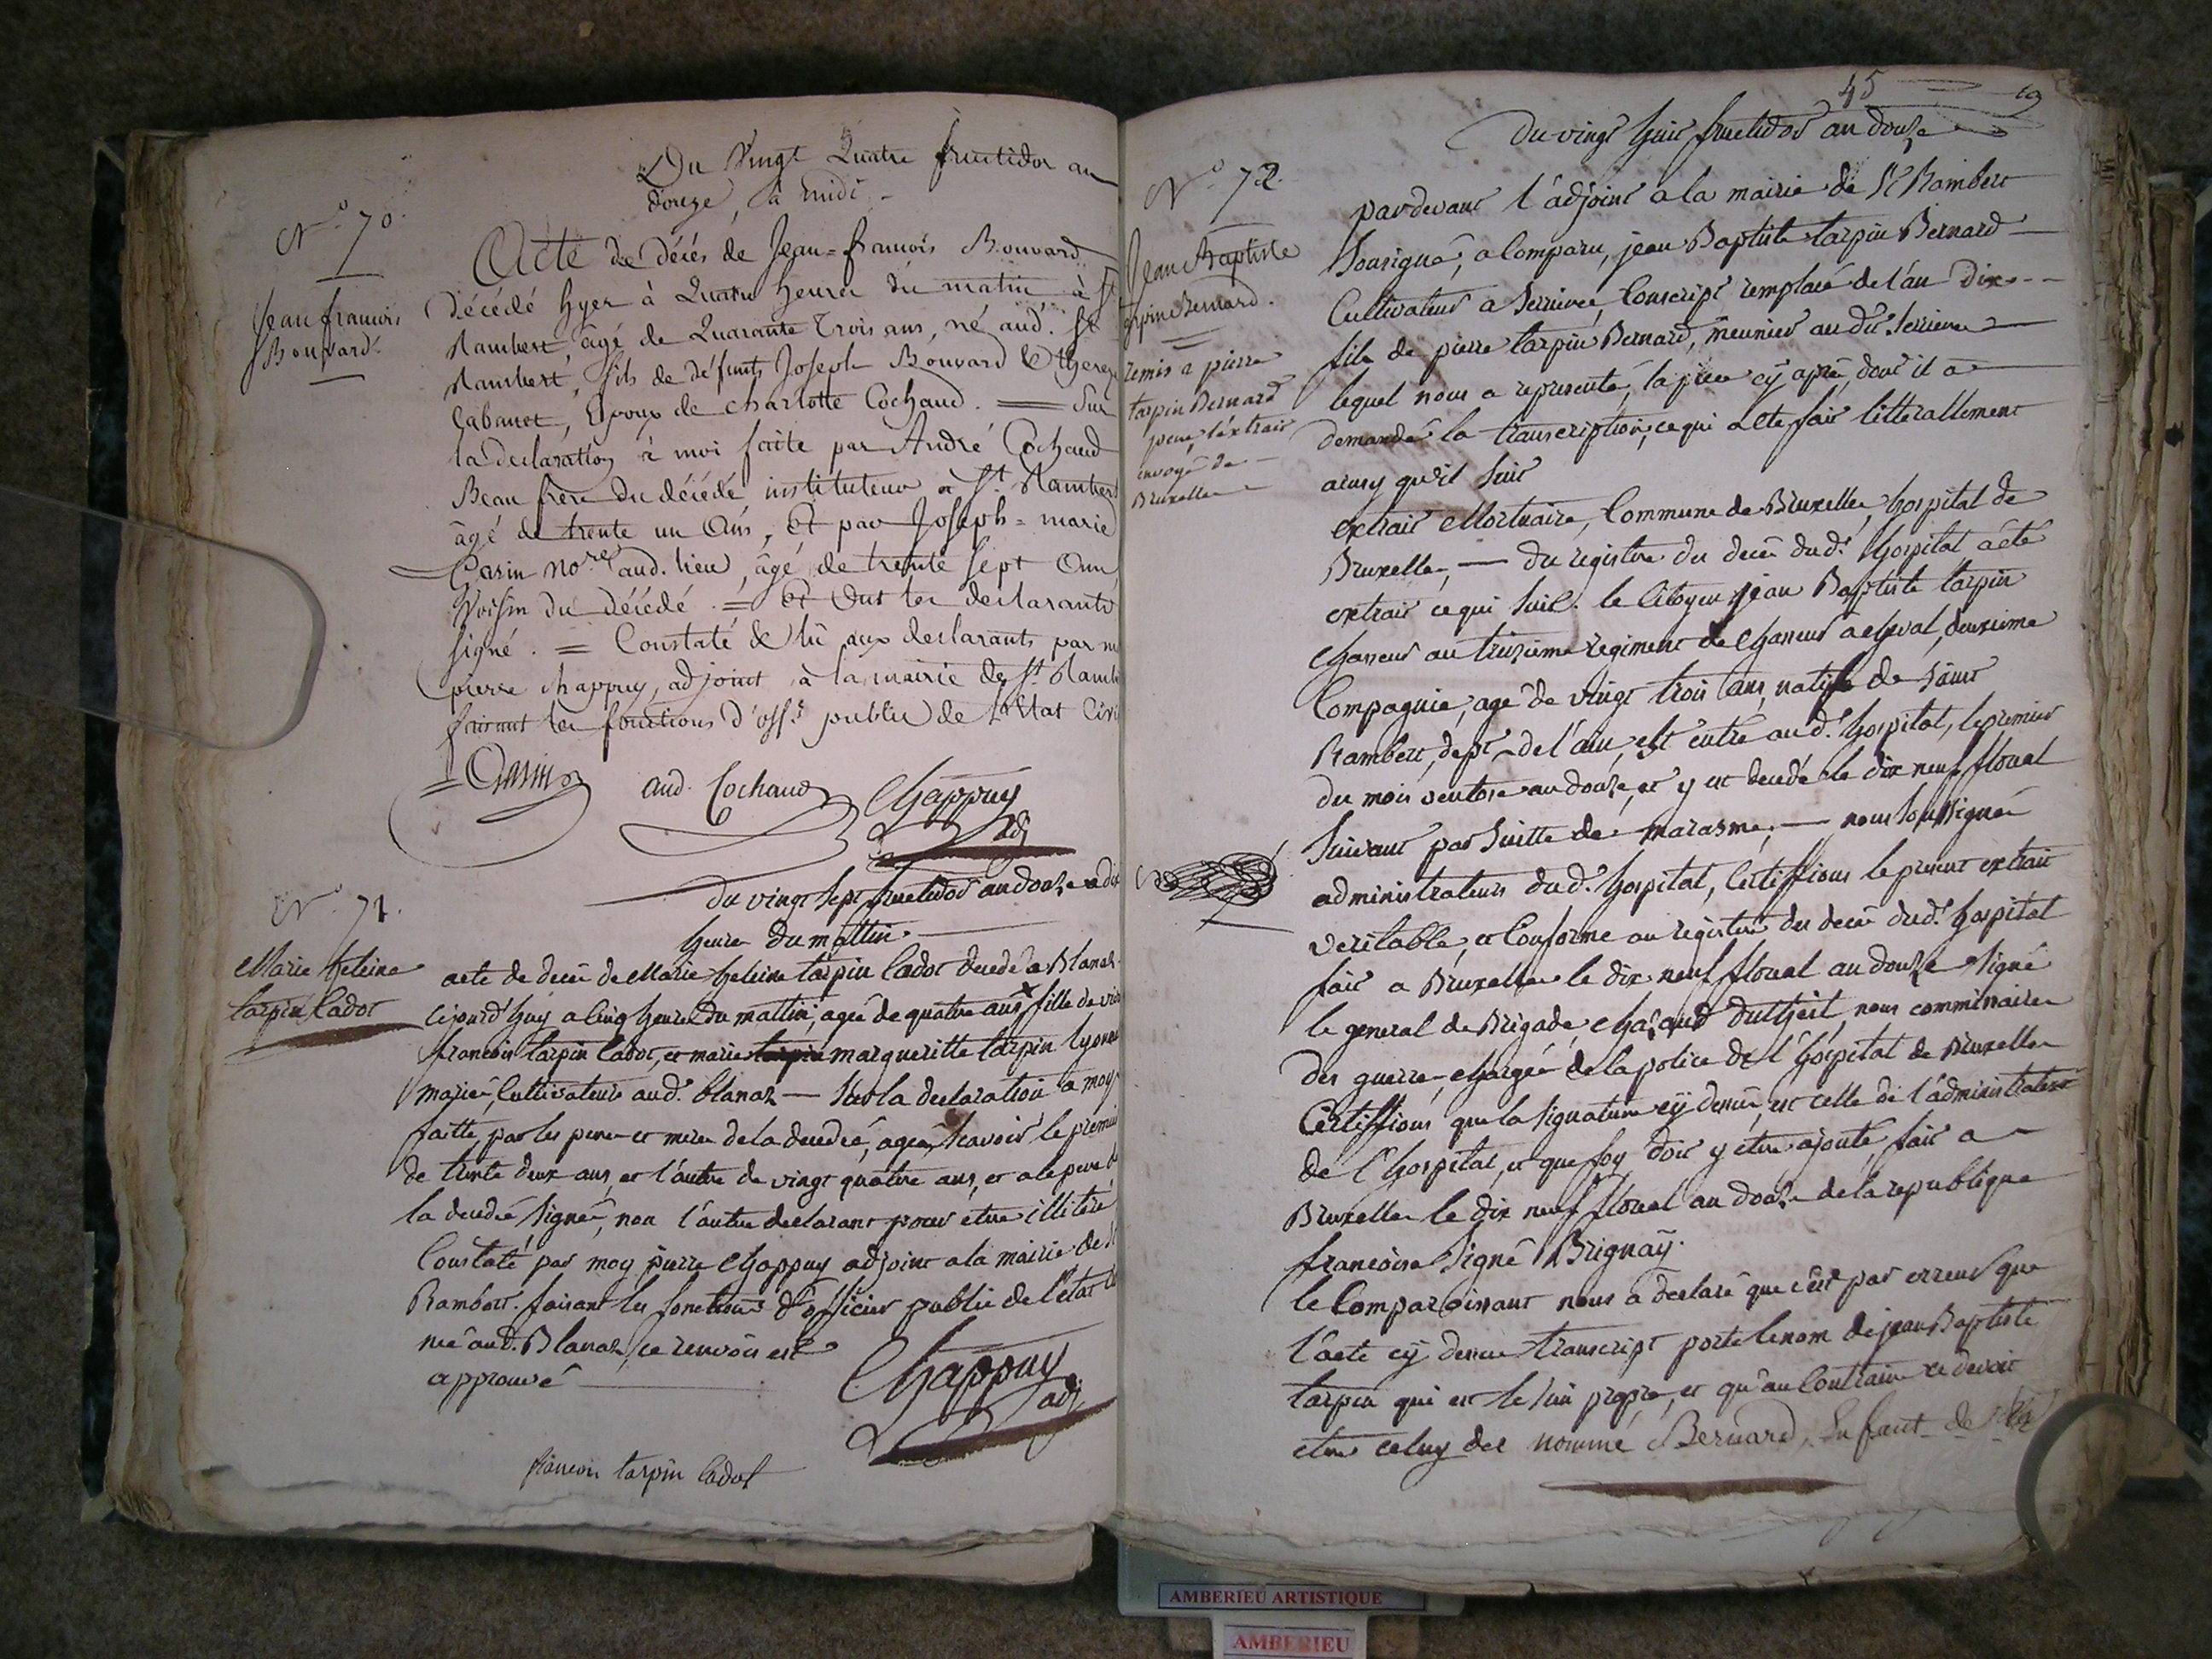 Du Vingt Quatre fructidor an
douze, à midi -
N.o 70.
Jean francois
Bouvard
Acte de décés de Jean=francois Bouvard
décédé hyer à Quatre heures du matin à St
Rambert, âgé de Quarante Trois ans, né aud. St
Rambert, fils de défunts Joseph Bouvard & therese
Cabanet, Epoux de charlotte Cochaud. = Sur
la declaration à moi faite par André Cochaud
Beau frère du décédé, instituteur à St. Rambert
âgé de trente un Ans, et par Joseph=marie
Garin no.re aud. lieu, âgé de trente sept Ans,
Voisin du décédé. = Et Ont les declarants
signé. = Constaté & lû aux declarants par m
pierre chappuy, adjoint à la mairie de St. Ramb
faisant les fonctions d'off.r public de l'état Civi
=Garin
And. Cochaud
Chappuy
adj
N.o 71.
du vingt sept fructidor an douze a dix
heures du mattin.
Marie heleine
tarpin Cadot
acte de decès de Marie heleine tarpin Cadot decedé a Blanaz
cejourd'huy a cinq heures du mattin, agée de quatre ans x fille de
francois tarpin Cadot, et marie tarpin margueritte tarpin
mariés, Cultivateurs aud. blanaz — sur la declaration a moy
faitte, par les peres et meres de la decedeé, agés, scavoir le premier
de trente deux ans, et l'autre de vingt quatre ans, et a le pere de
la decedeé, signé, non l'autre declarant pour etre illitéré
Constaté par moy pierre Chappuy adjoint a la mairie de St
Rambert. faisant les fonctions d'officier public de l'état
née aud. Blanaz, ce renvois est
approuvé
Chappuy
adj
francois tarpin Cadot
45
19
Du vingt huit fructidor an douze
N.o 72.
Jean Baptiste
tarpin Bernard.
remis a pierre
tarpin Bernard
pere, l'extrait
envoyé de
Bruxelles
pardevant l'adjoint a la mairie de St Rambert
Sousigné, a Comparu, jean Baptiste tarpin Bernard
Cultivateur a Serrieres, Conscript remplacé de l'an dix
fils de pierre tarpin Bernard, meunier au dit Serrieres
lequel nous a representé, la piece cÿ après, dont il a
demandé la transcription, ce qui a eté fait litterallement
ainsy qu'il suit
extrait Mortuaire, Commune de Bruxelles, hospital de
Bruxelles, — du registre du decès dud.t hospital a été
extrait ce qui suit. le Citoyen jean Baptiste tarpin
chasseur au troisieme regiment de chasseur a cheval, deuxieme
Compagnie, agé de vingt trois ans, natif de saint
Rambert, dep.t de l'ain, est entré aud.t hospital, le premier
du mois ventose an douze, et y est decedé le dix neuf floreal
suivant par suitte de marasme, — nous soussignés
administrateurs dud.t hospital, Certiffions le present extrait
veritable, et Conforme au registre des decès dud.t hospital
fait a Bruxelles le dix neuf floreal an douze Signé
le general de Brigade, duthéil, nous commissaires
des guerres chargé de la police de l'hospital de Bruxelles
Certiffions que la signature cÿ dessus, est celle de l'administrateur
de l'hospital, et que foy doit y etre ajouté, fait a
Bruxelles le dix neuf floreal an douze de la republique
francoise Signé Brignaÿ.
le Comparoissant nous a declaré que c'est par erreur que
l'acte cÿ dessus transcript porte le nom de jean Baptiste
tarpin qui est le sien propre, et qu'au Contraire ce devoit
etre celuy del nommé Bernard, Enfant de
AMBERIEU ARTISTIQUE
AMBERIEU